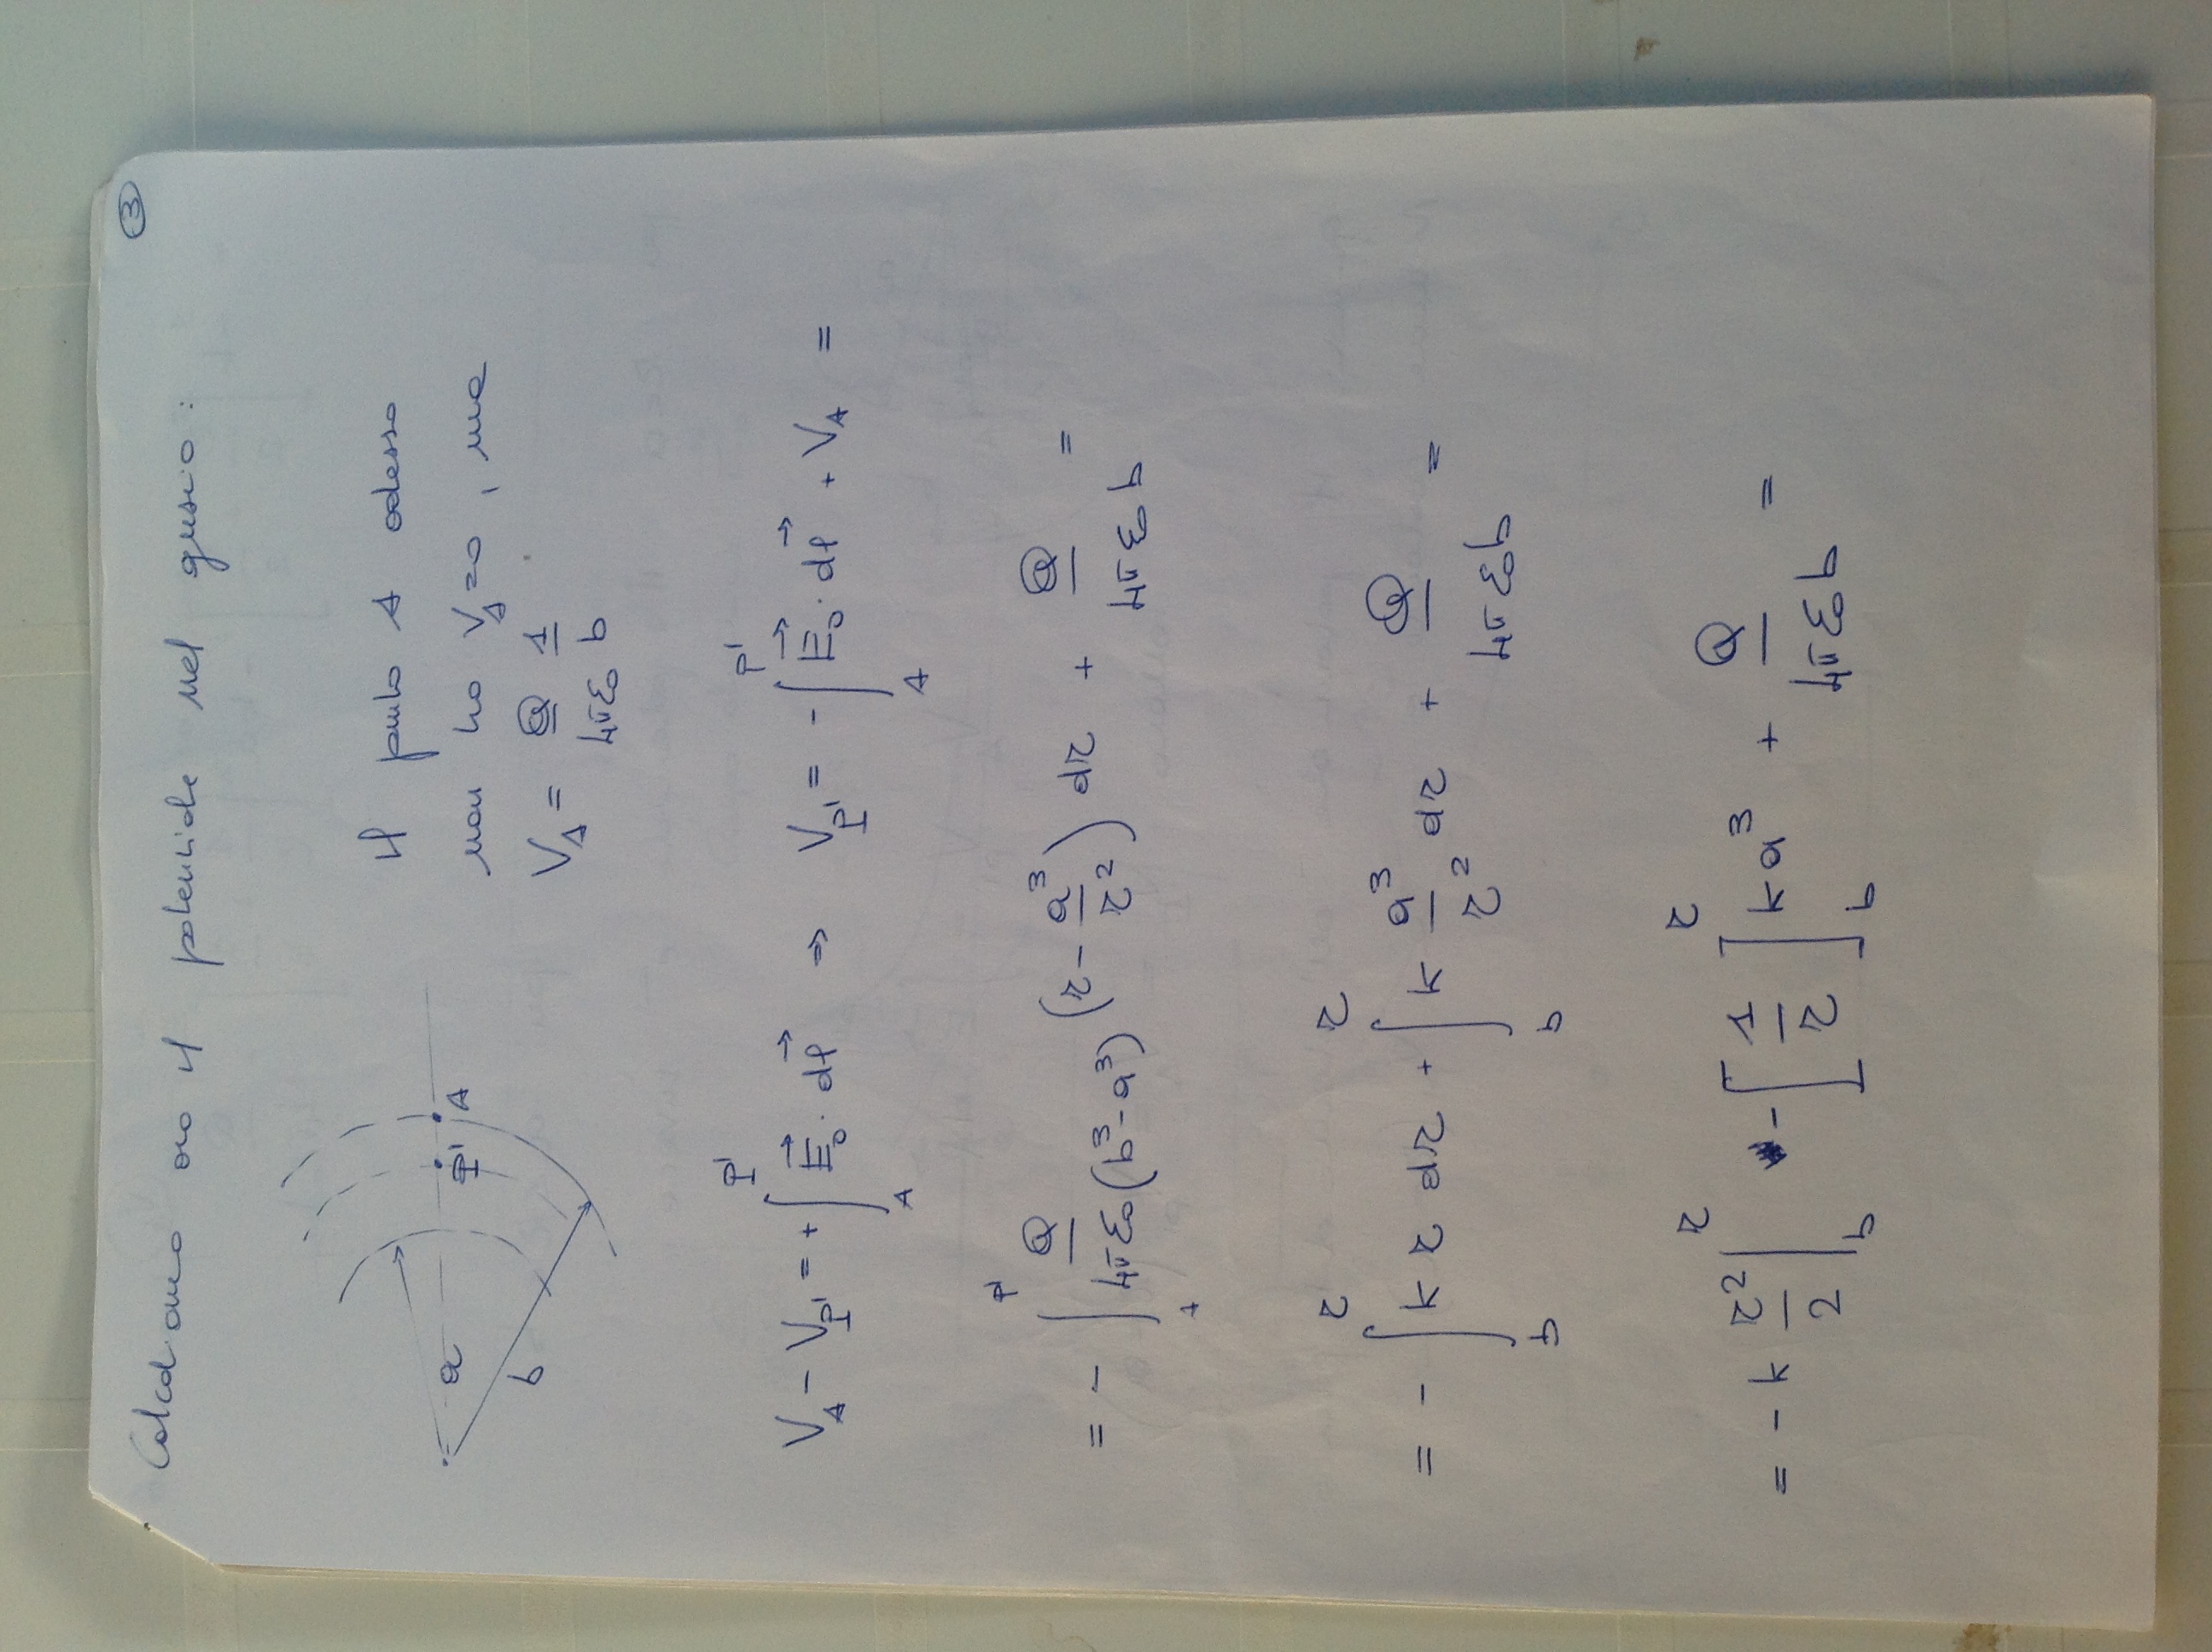 ③
Calcoliamo ora il potenziale nel guscio:
a P' A
b
Il punto A adesso
non ha V_A=0, ma
V_A = Q/(4πε₀) 1/b
V_A - V_P' = +∫_A^P' E₀·dl ⇒ V_P' = -∫_A^P' E₀·dl + V_A =
= - ∫_A^P' Q/(4πε₀(b³-a³)) (r - a³/r²) dr + Q/(4πε₀b) =
= - ∫_b^r k r dr + ∫_b^r k a³/r² dr + Q/(4πε₀b) =
= - k r²/2 |_b^r - [1/r]_b^r k a³ + Q/(4πε₀b) =